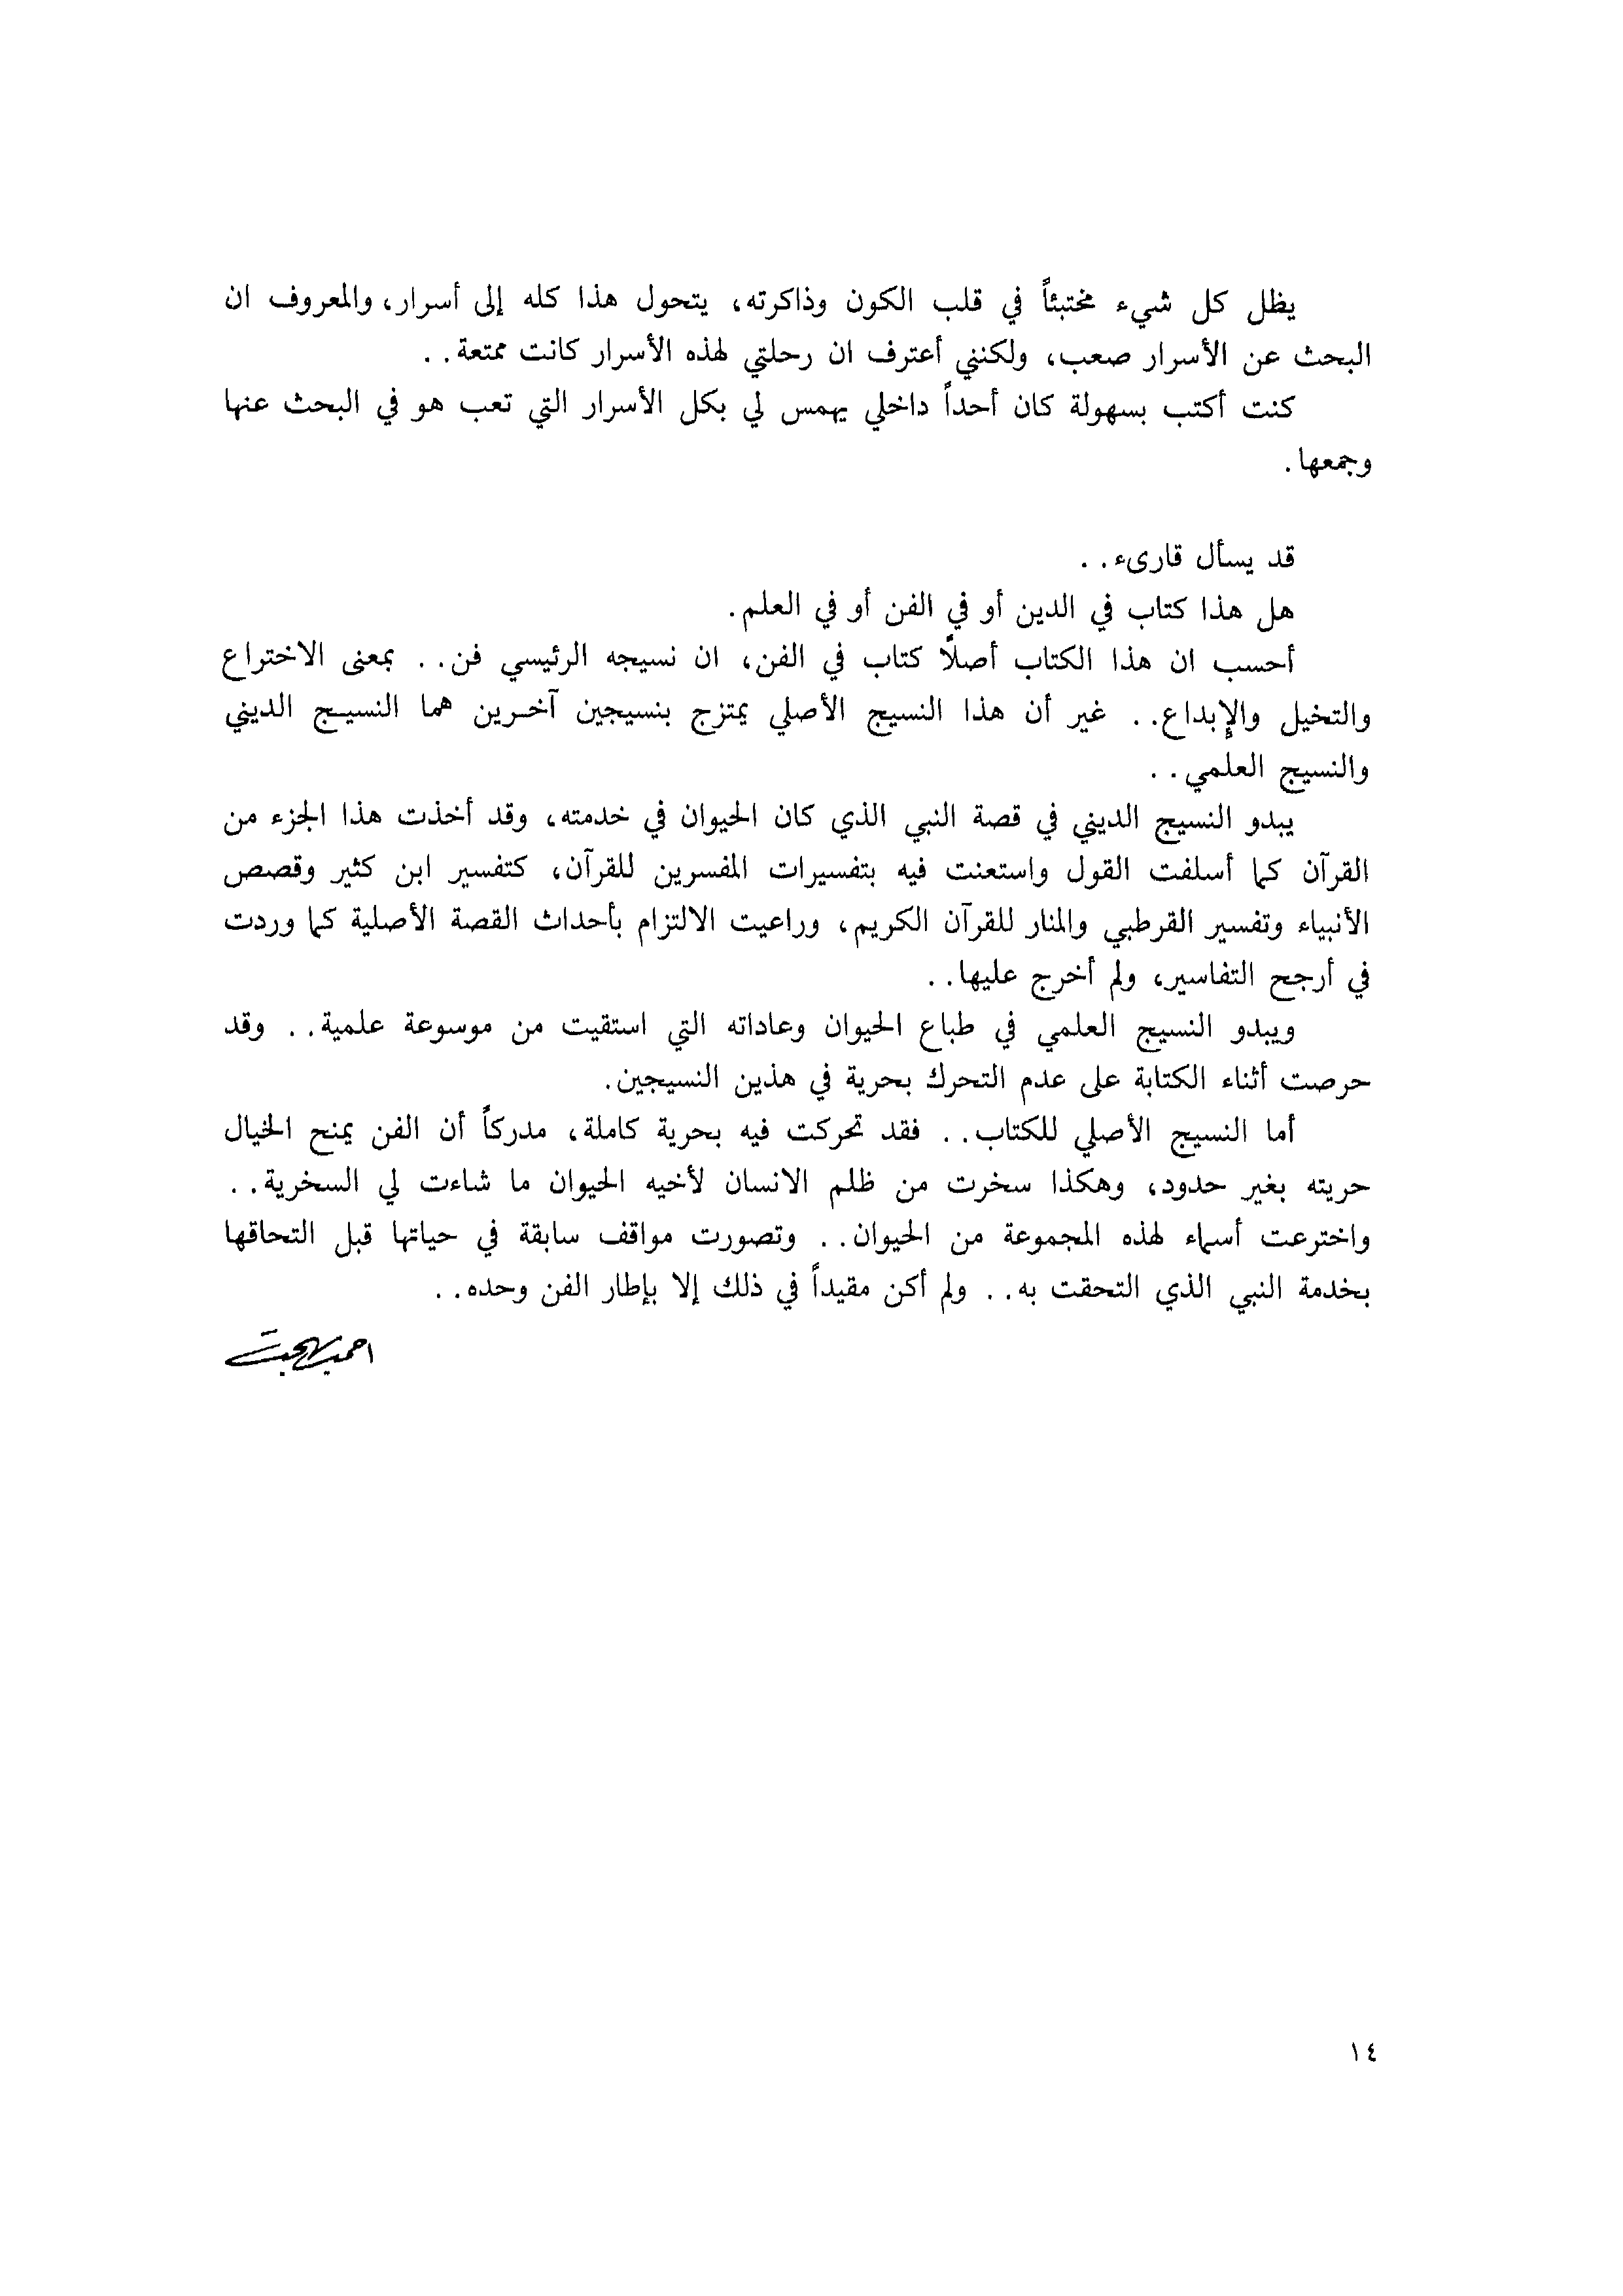 يظل كل شيء مختبئاً في قلب الكون وذاكرته، يتحول هذا كله إلى أسرار، والمعروف ان
البحث عن الأسرار صعب، ولكنني أعترف ان رحلتي لهذه الأسرار كانت ممتعة . .
كنت أكتب بسهولة كان أحداً داخلي يهمس لي بكل الأسرار التي تعب هو في البحث عنها
وجمعها .
قد يسأل قارىء . .
هل هذا كتاب في الدين أو في الفن أو في العلم .
أحسب ان هذا الكتاب أصلاً كتاب في الفن، ان نسيجه الرئيسي فن . . بمعنى الاختراع
والتخيل والإبداع . . غير أن هذا النسيج الأصلي يمتزج بنسيجين آخـرين هما النسيـج الديني
والنسيج العلمي . .
يبدو النسيج الديني في قصة النبي الذي كان الحيوان في خدمته، وقد أخذت هذا الجزء من
القرآن كما أسلفت القول واستعنت فيه بتفسيرات المفسرين للقرآن، كتفسير ابن كثير وقصص
الأنبياء وتفسير القرطبي والمنار للقرآن الكريم، وراعيت الالتزام بأحداث القصة الأصلية كما وردت
في أرجح التفاسير، ولم أخرج عليها . .
ويبدو النسيج العلمي في طباع الحيوان وعاداته التي استقيت من موسوعة علمية . . وقد
حرصت أثناء الكتابة على عدم التحرك بحرية في هذين النسيجين .
أما النسيج الأصلي للكتاب . . فقد تحركت فيه بحرية كاملة، مدركاً أن الفن يمنح الخيال
حريته بغير حدود، وهكذا سخرت من ظلم الانسان لأخيه الحيوان ما شاءت لي السخرية . .
واخترعت أسماء لهذه المجموعة من الحيوان . . وتصورت مواقف سابقة في حياتها قبل التحاقها
بخدمة النبي الذي التحقت به . . ولم أكن مقيداً في ذلك إلا بإطار الفن وحده . .
احمد بهجت
١٤